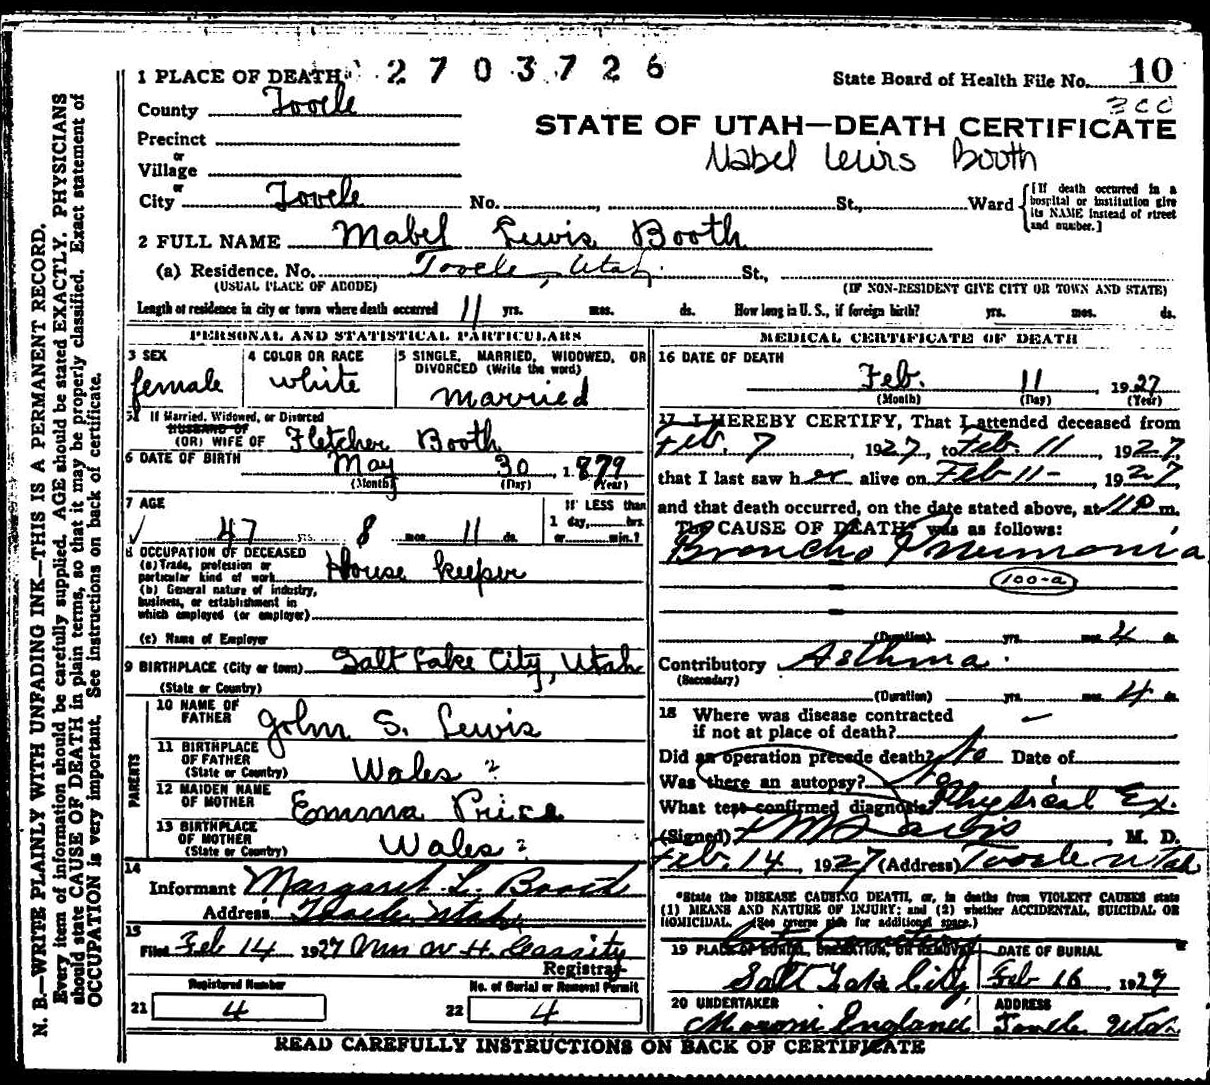 N. B.—WRITE PLAINLY WITH UNFADING INK—THIS IS A PERMANENT RECORD.
Every item of information should be carefully supplied. AGE should be stated EXACTLY. PHYSICIANS
should state CAUSE OF DEATH in plain terms, so that it may be properly classified. Exact statement of
OCCUPATION is very important. See instructions on back of certificate.
2703726
1 PLACE OF DEATH
State Board of Health File No. 10
300
County Tooele
STATE OF UTAH—DEATH CERTIFICATE
Precinct
Mabel Lewis Booth
or
Village
or
City Tooele No. , St., Ward
[If death occurred in a
hospital or institution give
its NAME instead of street
and number.]
2 FULL NAME Mabel Lewis Booth
(a) Residence. No. Tooele, Utah. St.,
(USUAL PLACE OF ABODE) (IF NON-RESIDENT GIVE CITY OR TOWN AND STATE)
Length of residence in city or town where death occurred 11 yrs. mos. ds. How long in U. S., if foreign birth? yrs. mos. ds.
PERSONAL AND STATISTICAL PARTICULARS
3 SEX
female
4 COLOR OR RACE
white
5 SINGLE, MARRIED, WIDOWED, OR
DIVORCED (Write the word)
married
5a If Married, Widowed, or Divorced
HUSBAND OF
(OR) WIFE OF Fletcher Booth
6 DATE OF BIRTH May 30 1879
(Month) (Day) (Year)
7 AGE
47 yrs. 8 mos. 11 ds.
IF LESS than
1 day, hrs.
or min.?
8 OCCUPATION OF DECEASED
(a) Trade, profession or
particular kind of work House keeper
(b) General nature of industry,
business, or establishment in
which employed (or employer)
(c) Name of Employer
9 BIRTHPLACE (City or town) Salt Lake City, Utah
(State or Country)
PARENTS
10 NAME OF
FATHER John S. Lewis
11 BIRTHPLACE
OF FATHER
(State or Country) Wales ?
12 MAIDEN NAME
OF MOTHER Emma Price
13 BIRTHPLACE
OF MOTHER
(State or Country) Wales ?
14
Informant Margaret L. Booth
Address Tooele, Utah,
15
Filed Feb 14 1927 H. Cassity
Registrar
Registered Number
21 4
No. of Burial or Removal Permit
22 4
MEDICAL CERTIFICATE OF DEATH
16 DATE OF DEATH
Feb. 11 1927
(Month) (Day) (Year)
17 I HEREBY CERTIFY, That I attended deceased from
Feb. 7, 1927, to Feb. 11, 1927,
that I last saw her alive on Feb 11-, 1927,
and that death occurred, on the date stated above, at 11 P m.
The CAUSE OF DEATH was as follows:
Broncho Pneumonia
100-a
(Duration) yrs. mos. 4 ds.
Contributory Asthma.
(Secondary)
(Duration) yrs. mos. 4 ds.
18 Where was disease contracted
if not at place of death?
Did an operation precede death? No Date of
Was there an autopsy?
What test confirmed diagnosis Physical Ex.
(Signed) Davis, M. D.
Feb. 14, 1927 (Address) Tooele Utah
*State the DISEASE CAUSING DEATH, or, in deaths from VIOLENT CAUSES state
(1) MEANS AND NATURE OF INJURY; and (2) whether ACCIDENTAL, SUICIDAL OR
HOMICIDAL. (See reverse side for additional space.)
19 PLACE OF BURIAL, CREMATION, OR REMOVAL
Salt Lake City
DATE OF BURIAL
Feb 16 1927
20 UNDERTAKER
Moroni England
ADDRESS
Tooele Utah
READ CAREFULLY INSTRUCTIONS ON BACK OF CERTIFICATE